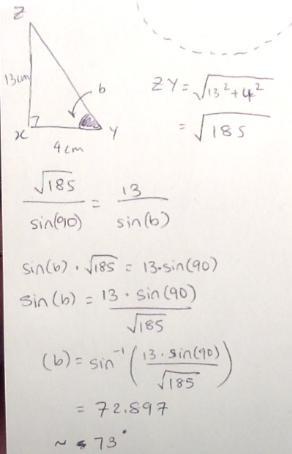 Z
13cm
b
x
y
4cm
ZY = √13²+4²
= √185
√185 / sin(90) = 13 / sin(b)
sin(b) · √185 = 13·sin(90)
sin(b) = 13 · sin(90) / √185
(b) = sin⁻¹ (13 · sin(90) / √185)
= 72.897
~ 73°